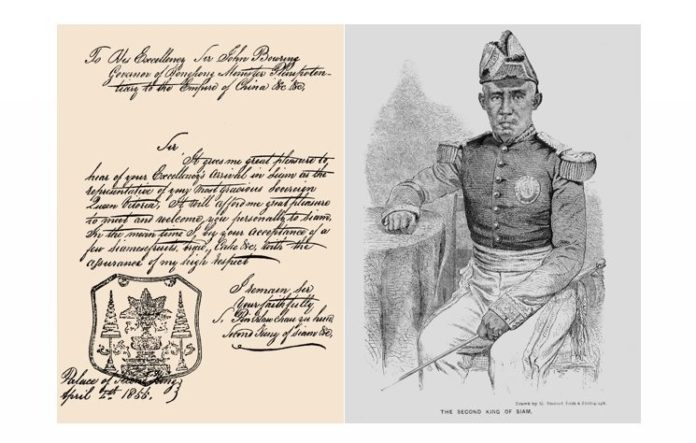 To His Excellency Sir John Bowring
Govenor of Hongkong Menister Plenipoten-
tiary to the Empire of China &c &c,
Sir
It gives me great pleasure to
hear of your Excellency's arrival in Siam as the
representative of your most gracious Sovereign
Queen Victoria, It will afford me great pleasure
to meet and welcome you personally to Siam,
In the mean time I beg your acceptance of a
few Siamese fruits, Cake &c, with the
assurance of my high respect
I remain Sir
Your faithfully
S. Pin
Second King of Siam &c,
Palace of Second King
April 2nd 1855.
Drawn by from a Photograph.
THE SECOND KING OF SIAM.